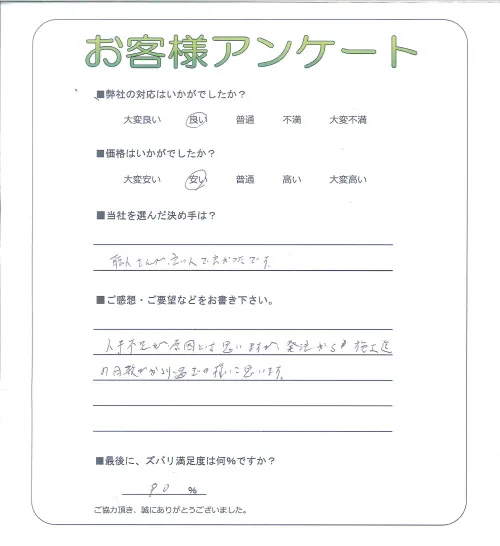 お客様アンケート
■弊社の対応はいかがでしたか？
大変良い 良い 普通 不満 大変不満
■価格はいかがでしたか？
大変安い 安い 普通 高い 大変高い
■当社を選んだ決め手は？
職人さんが良い人で良かったです。
■ご感想・ご要望などをお書き下さい。
人手不足が原因とは思いますが、発注から施工迄
の日数がかかり過ぎの様に思います。
■最後に、ズバリ満足度は何％ですか？
90 ％
ご協力頂き、誠にありがとうございました。